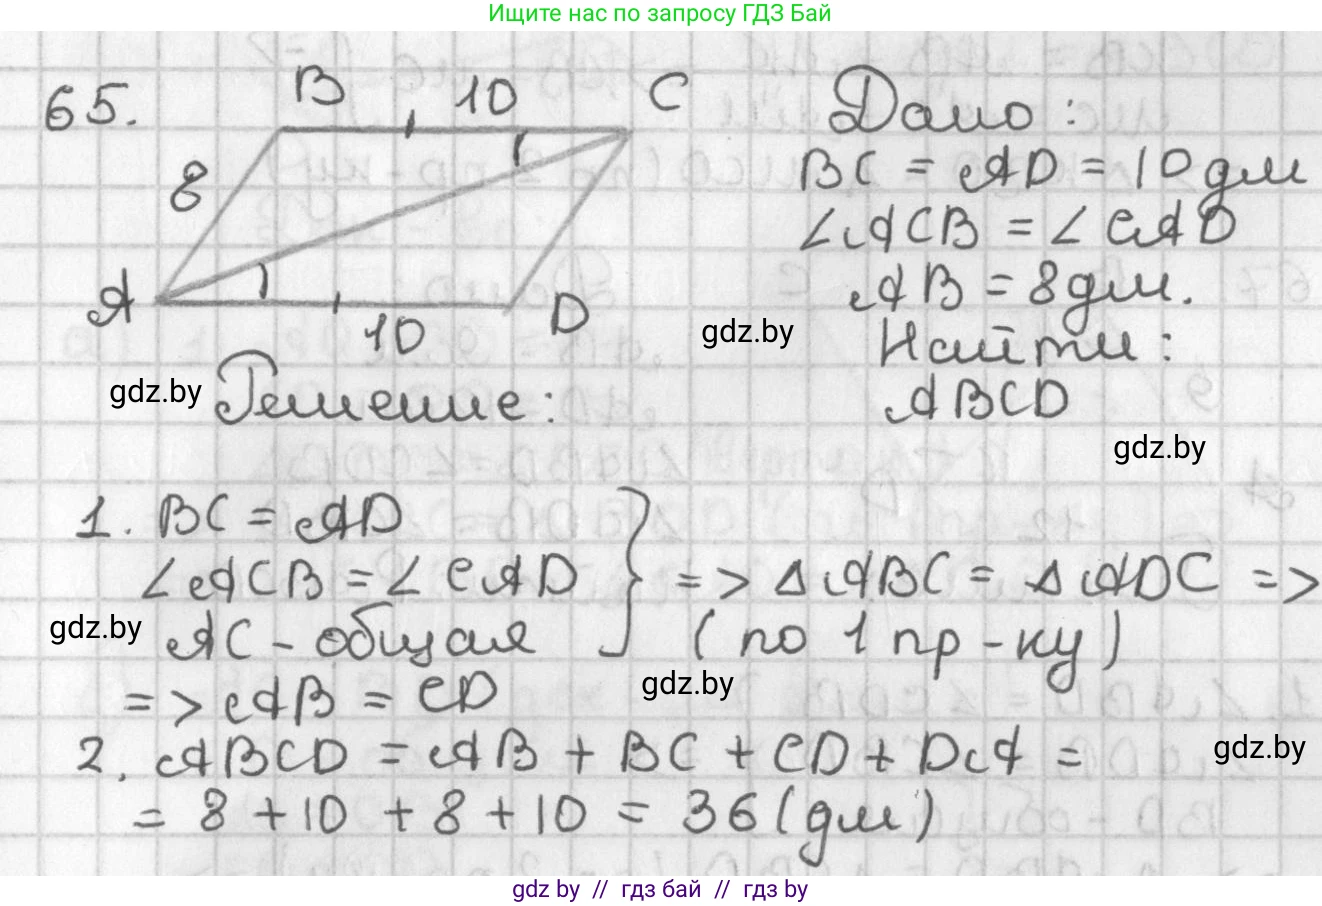 Ищите нас по запросу ГДЗ Бай
65.
B 10 C
8
A 10 D
Дано:
BC = AD = 10 дм
∠ACB = ∠CAD
AB = 8 дм.
Найти:
ABCD
gdz.by
gdz.by
Решение:
gdz.by
1. BC = AD
∠ACB = ∠CAD } => ΔABC = ΔADC =>
gdz.by
AC - общая (по 1 пр-ку)
=> AB = CD
gdz.by
2. ABCD = AB + BC + CD + DA =
gdz.by
= 8 + 10 + 8 + 10 = 36 (дм)
gdz by // гдз бай // гдз by